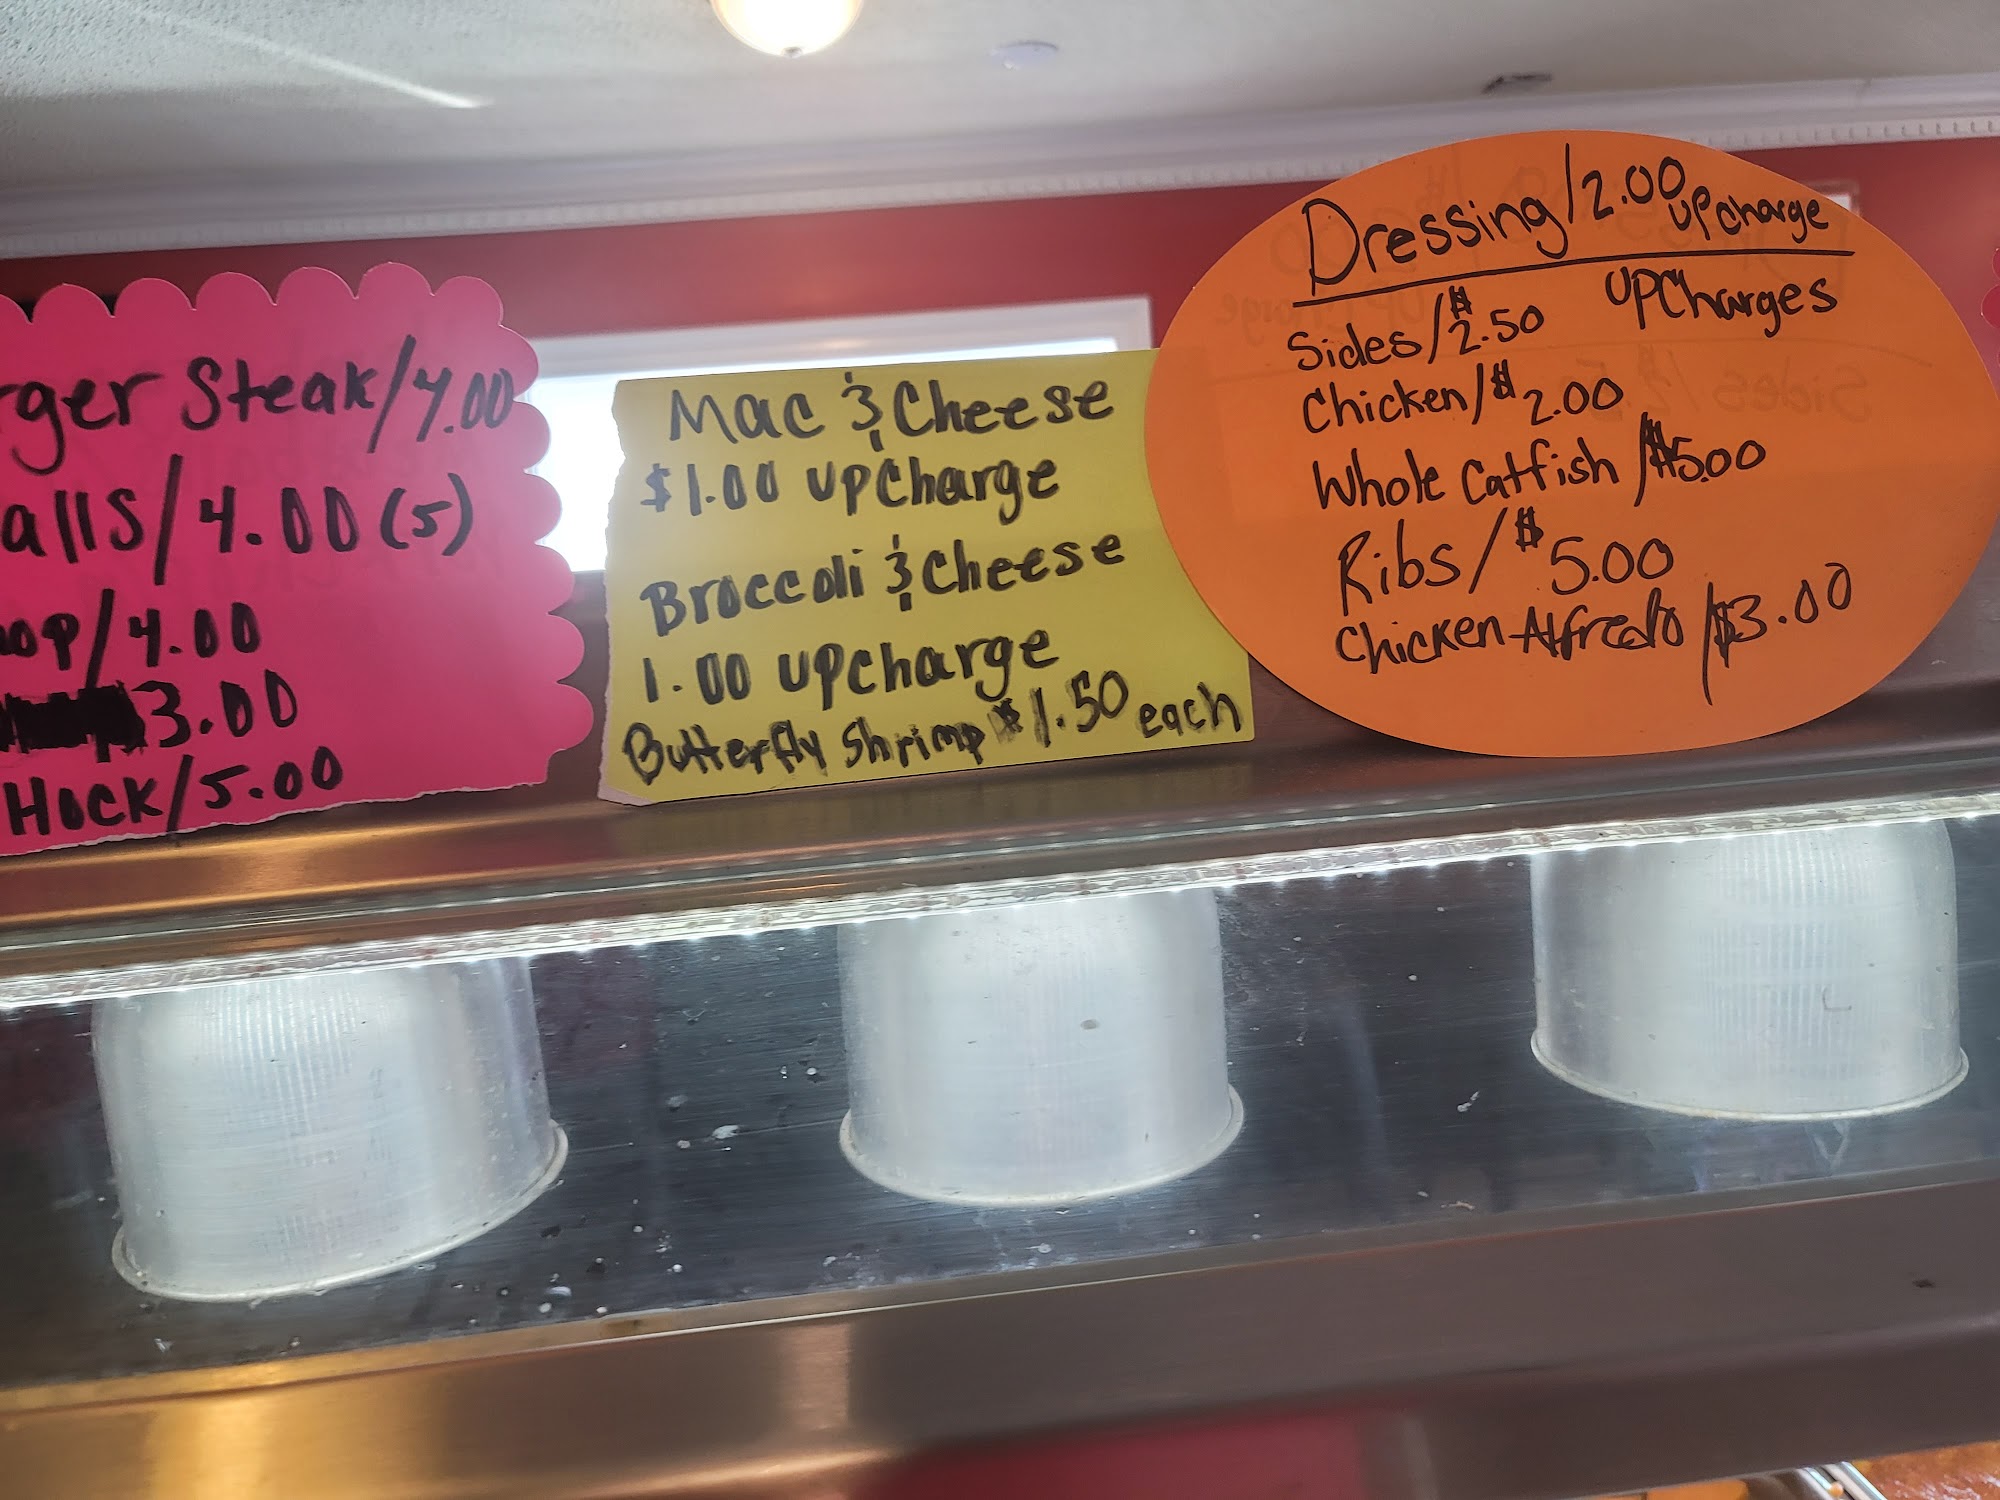 rger Steak/4.00
alls/4.00 (5)
hop/4.00
3.00
Hock/5.00
Mac & Cheese
$1.00 upcharge
Broccoli & Cheese
1.00 upcharge
Butterfly Shrimp $1.50 each
Dressing/2.00 upcharge
Sides/$2.50 UPCharges
Chicken/$2.00
Whole Catfish/$5.00
Ribs/$5.00
Chicken Alfredo/$3.00